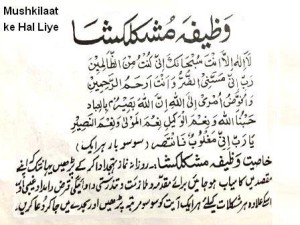 Mushkilaat
ke Hal Liye
وظیفہ مُشکلکشا
لَا اِلٰهَ اِلَّا اَنْتَ سُبْحَانَكَ اِنِّیْ كُنْتُ مِنَ الظَّالِمِیْنَ
رَبِّ اِنِّیْ مَسَّنِیَ الضُّرُّ وَاَنْتَ اَرْحَمُ الرَّحِمِیْنَ
وَاُفَوِّضُ اَمْرِیْ اِلَی اللّٰهِ اِنَّ اللّٰهَ بَصِیْرٌ بِالْعِبَادِ
حَسْبُنَا اللّٰهُ وَنِعْمَ الْوَكِیْلُ نِعْمَ الْمَوْلٰی وَنِعْمَ النَّصِیْرُ
یَا رَبِّ اِنِّیْ مَغْلُوْبٌ فَانْتَصِرْ (سو سو بار ہر ایک)
خاصیت وظیفہ مشکلکشا۔ روزانہ نماز تہجد ادا کر کے پڑھیں یہانتک کہ اپنے
مقصد میں کامیاب ہو جائیں برائے مقدمہ و ملازمت و تندرستی و ادائیگی قرض و امداد غیبی اور
اسکے علاوہ ہر مشکلات کیلئے ہر ایک آیت کو سو سو مرتبہ پڑھیں اور سجدے میں جا کر دعا کریں۔